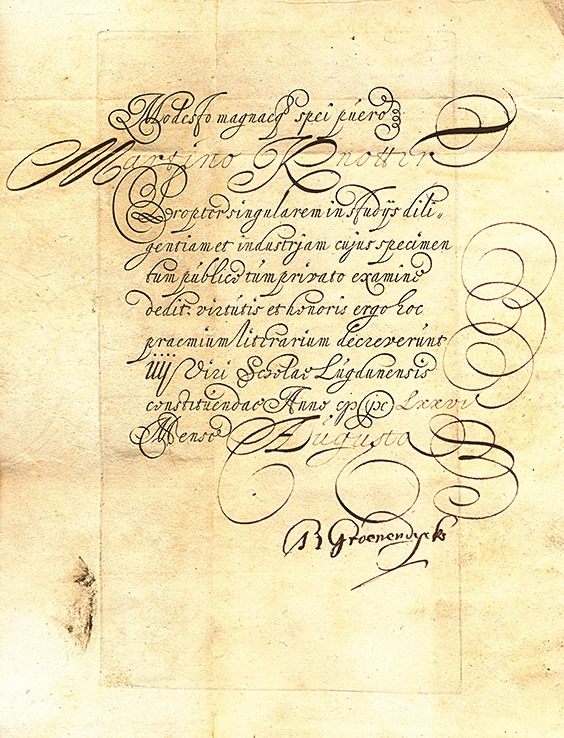 Modesto magnaeq̃ spei puero
Martino Knotter
Propter singularem in studijs dili„
gentiam et industrjam cujus specimen
tum publicè tum privato examine
dedit: virtutis et honoris ergo hoc
praemium literarium decreverunt
IIIJ Viri Scholae Lugdunensis
constituendae Anno cIↄ Iↄc Lxxvi
Mense Augusto
Groenendyck